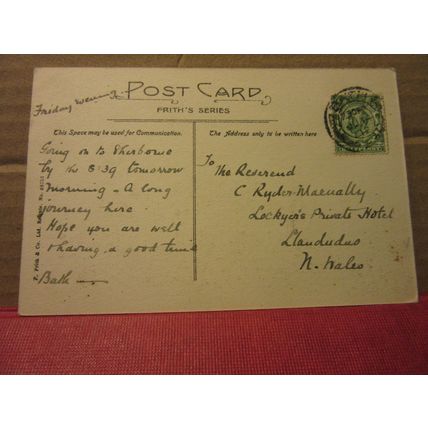 Friday
POST CARD
FRITH'S SERIES
This Space may be used for Communication.
The Address only to be written here
Going on to Sherborne
by the 8:39 tomorrow
morning - A long
journey here
Hope you are well
& having a good time
Bath
To
The Reverend
C Ryder
Lockyer's Private Hotel
Llandudno
N. Wales
F. Frith & Co., Ltd., Reigate. No.